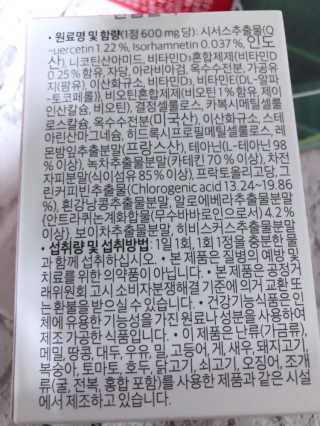 • 원료명 및 함량(1정 600 mg 당): 시서스추출물(Q
uercetin 1.22 %, Isorhamnetin 0.037%, 인도
산), 니코틴산아미드, 비타민D₃혼합제제(비타민D
0.25% 함유, 자당, 아라비아검, 옥수수전분, 가공유
지(팜유), 이산화규소, 비타민D₃, 비타민E(DL-알파
-토코페롤)), 비오틴혼합제제(비오틴 1% 함유, 제이
인산칼슘, 비오틴), 결정셀룰로스, 카복시메틸셀룰
로스칼슘, 옥수수전분(미국산), 이산화규소, 스테
아린산마그네슘, 히드록시프로필메틸셀룰로스, 레
몬밤추출분말(프랑스산), 테아닌(L-테아닌 98
% 이상), 녹차추출물분말(카테킨 70% 이상), 차전
자피분말(식이섬유 85% 이상), 프락토올리고당, 그
린커피빈추출물(Chlorogenic acid 13.24~19.86
%), 흰강낭콩추출물분말, 알로에베라추출물분말
(안트라퀴논계화합물(무수바바로인으로서) 4.2%
이상), 보이차추출물분말, 히비스커스추출물분말
• 섭취량 및 섭취방법: 1일 1회, 1회 1정을 충분한 물
과 함께 섭취하십시오. • 본 제품은 질병의 예방 및
치료를 위한 의약품이 아닙니다. • 본 제품은 공정거
래위원회 고시 소비자분쟁해결 기준에 의거 교환 또
는 환불을 받으실 수 있습니다. • 건강기능식품은 인
체에 유용한 기능성을 가진 원료나 성분을 사용하여
제조 가공한 식품입니다. • 이 제품은 난류(가금류),
메밀, 땅콩, 대두, 우유, 밀, 고등어, 게, 새우, 돼지고기,
복숭아, 토마토, 호두, 닭고기, 쇠고기, 오징어, 조개
류(굴, 전복, 홍합 포함)를 사용한 제품과 같은 시설
에서 제조하고 있습니다.